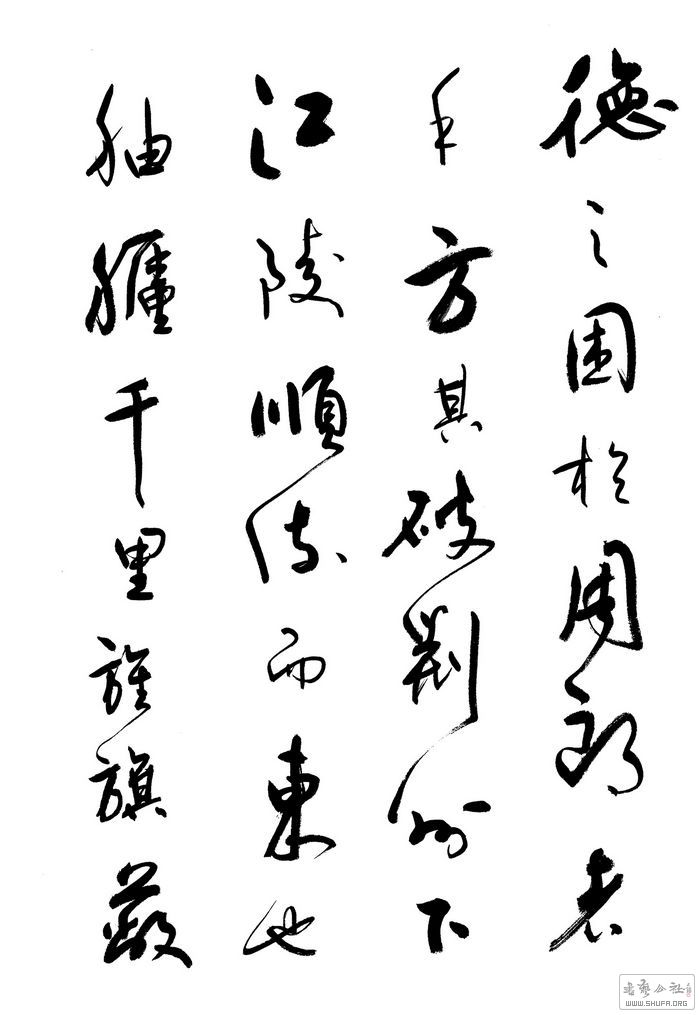 德之困於周郎者
乎方其破荊州下
江陵順流而東也
舳艫千里旌旗蔽
書藝公社
WWW.SHUFA.ORG